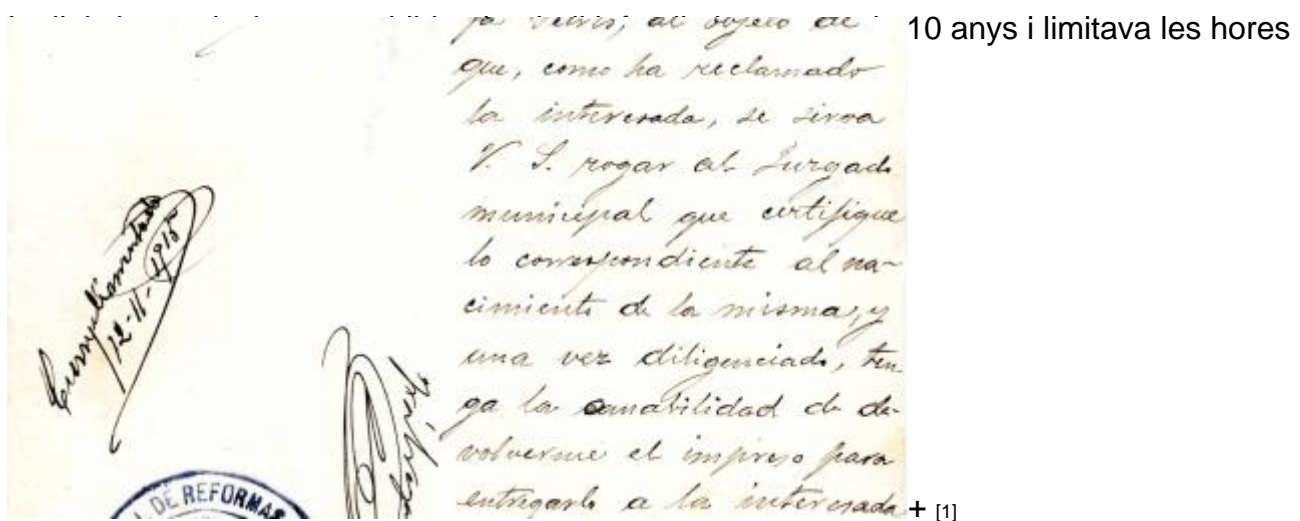 10 anys i limitava les hores
al objeto de
que, como ha reclamado
la interesada, se sirva
V. S. rogar al Juzgado
municipal que certifique
lo correspondiente al na-
cimiento de la misma, y
una vez diligenciado, ten
ga la amabilidad de de-
volverme el impreso para
entregarlo a la interesada
Cumplimentado
12-11-1915
DE REFORMAS
+ [1]